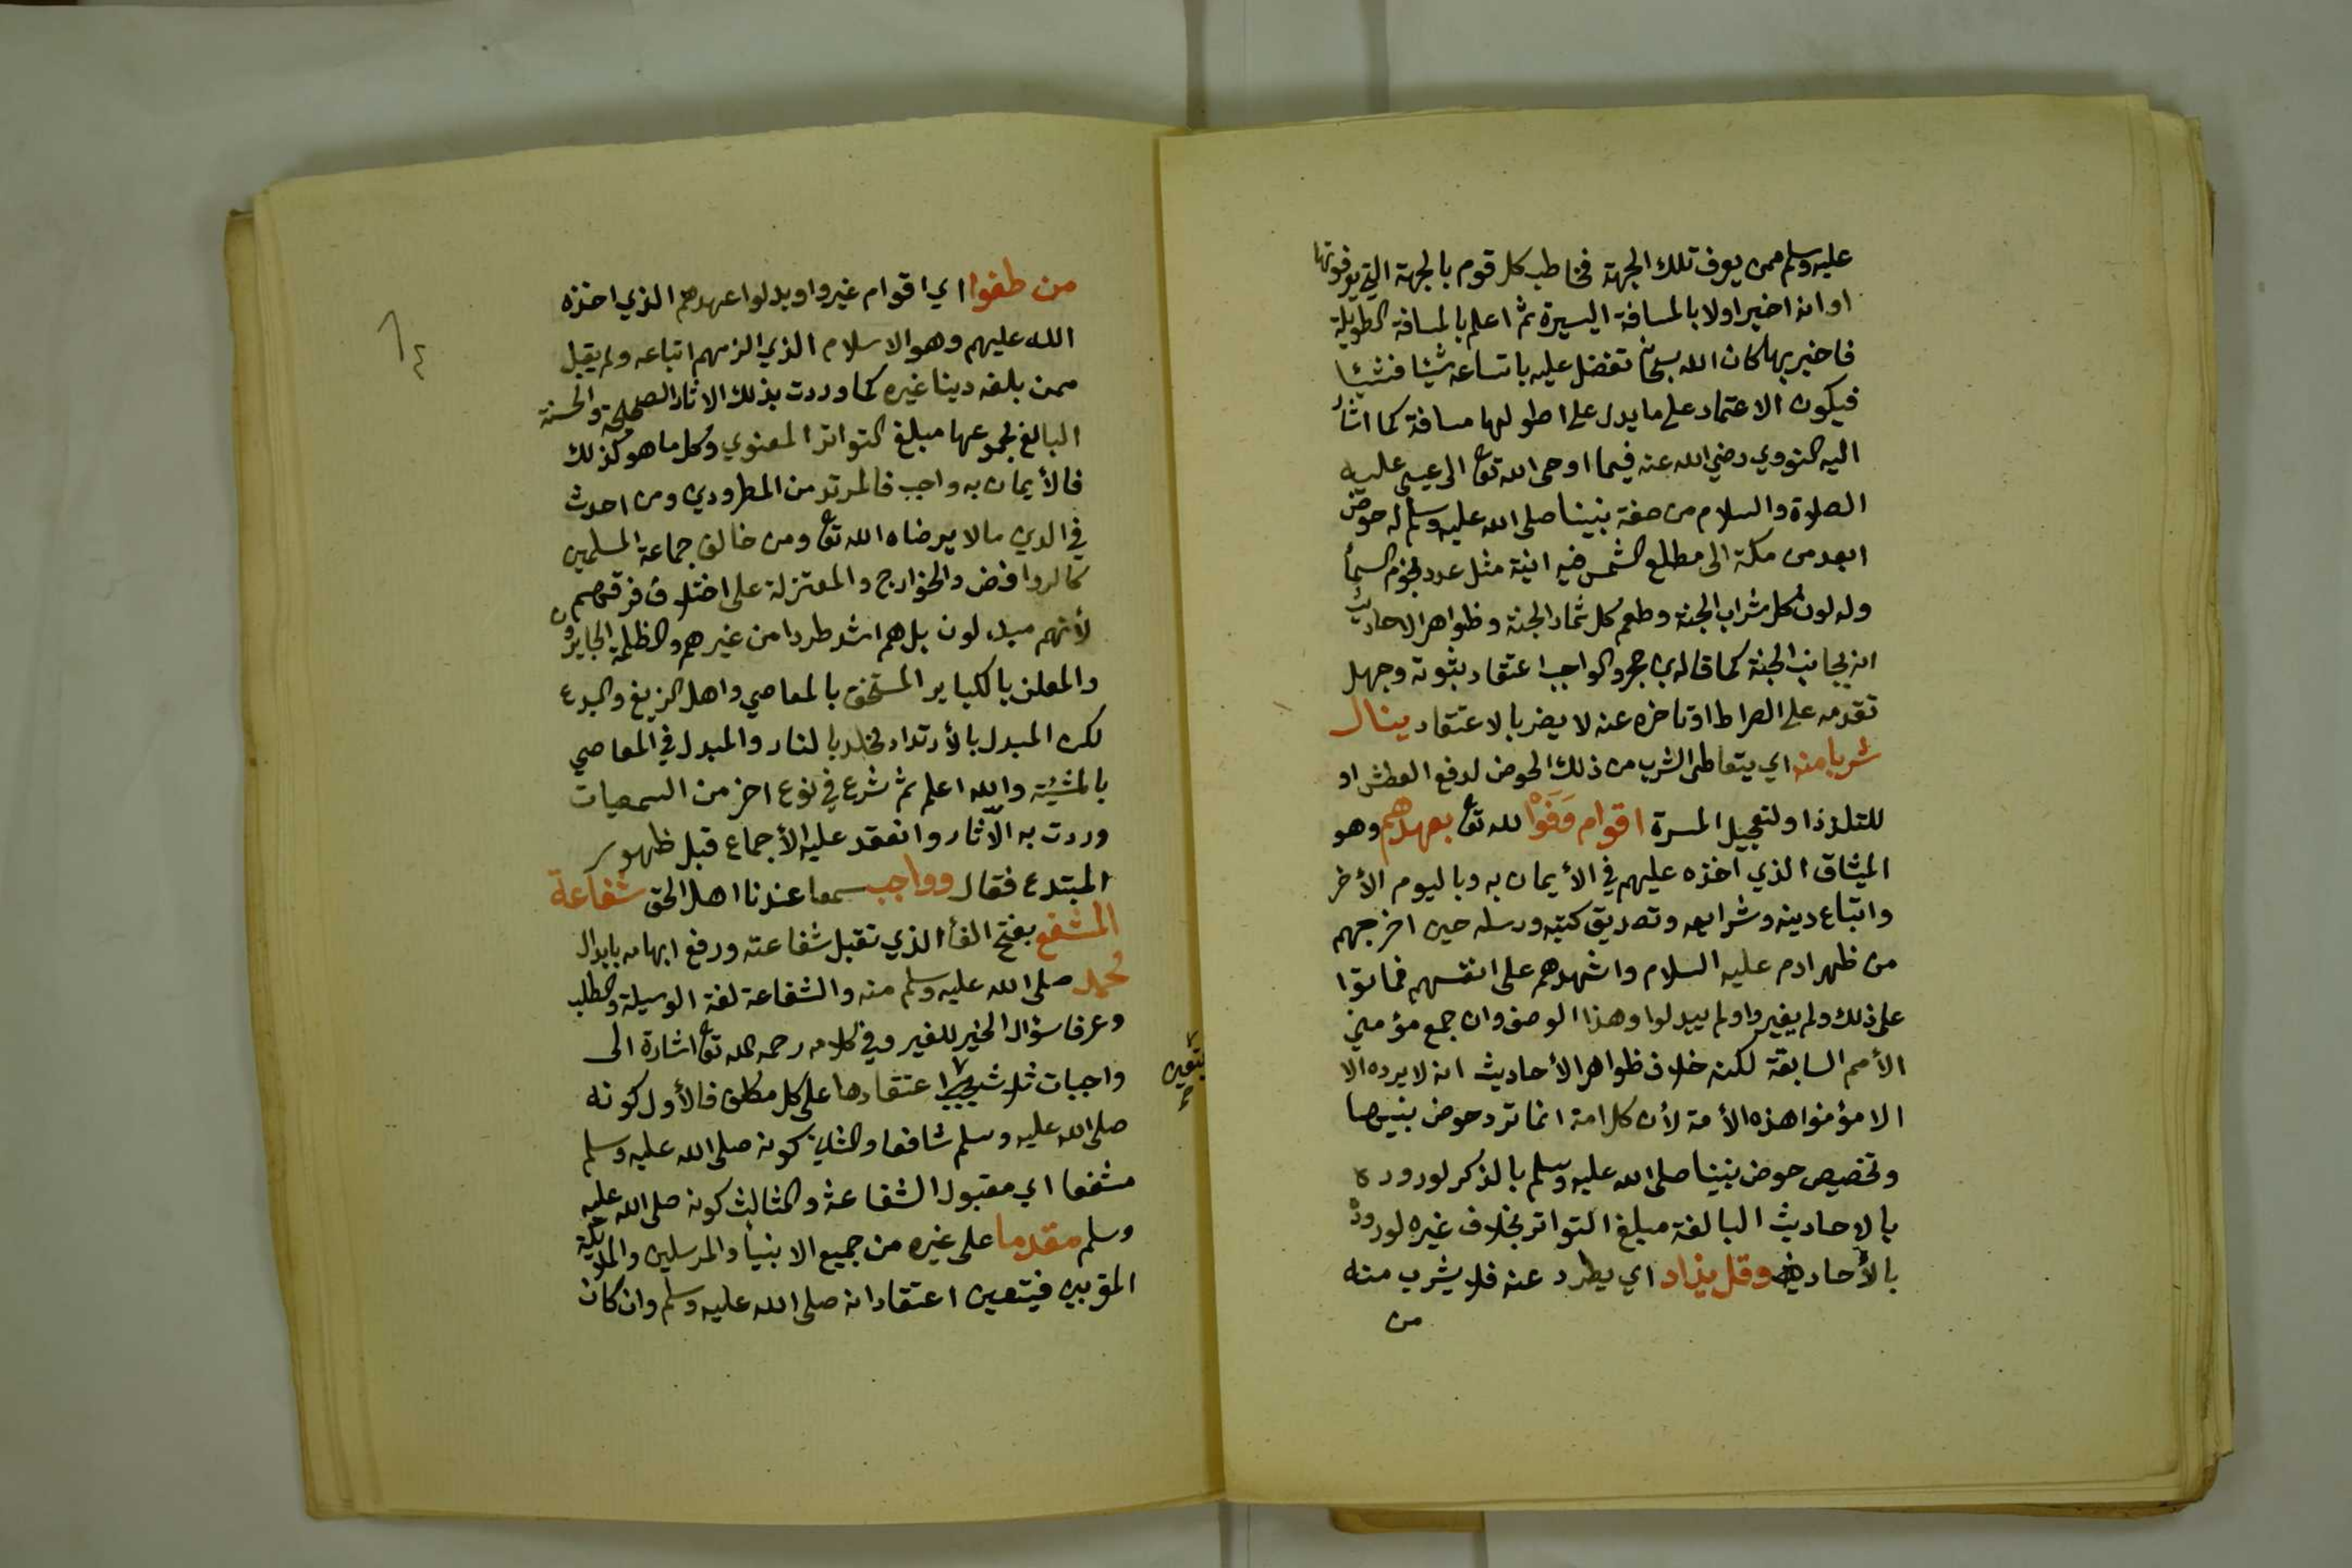 عليه وسلم ممن يعرف تلك الجهة فخاطب كل قوم بالجهة التي يعرفونها
او انه اخبر اولا بالمسافة اليسيرة ثم اعلم بالمسافة الطويلة
فاخبر بها كان الله سبحانه تفضل عليه باتساعه شيئا فشيئا
فيكون الاعتماد على ما يدل على اطولها مسافة كما اشار
اليه النووي رضي الله عنه فيما اوحى الله تعا الى عيسى عليه
الصلاة والسلام من صفة نبينا صلى الله عليه وسلم له حوض
ابعد من مكة الى مطلع الشمس فيه انية مثل عدد نجوم السمأ
وله لون كل شراب الجنة وطعم كل ثمار الجنة وظواهر الاحاديث
انه بجانب الجنة كما قاله بن حجر والواجب اعتقاد ثبوته وجهل
تقدمه على الصراط او تاخره عنه لا يضر بالاعتقاد ينال
شربا منه اي يتعاطى الشرب من ذلك الحوض لدفع العطش او
للتلذذ او لتعجيل المسرة اقوام وَفَوْا لله تعا بعهدهم وهو
الميثاق الذي اخذه عليهم في الأيمان به وباليوم الأخر
واتباع دينه وشرايعه وتصديق كتبه ورسله حين اخرجهم
من ظهر ادم عليه السلام واشهدهم على انفسهم فماتوا
على ذلك ولم يغيروا ولم يبدلوا وهذا الوصف وان جمع مؤمني
الأمم السابقة لكنه خلاف ظواهر الأحاديث انه لا يرده الا
الا مؤمنوا هذه الأمة لأن كل امة انما ترد حوض نبيها
وتخصيص حوض نبينا صلى الله عليه وسلم بالذكر لوروده
بالاحاديث البالغة مبلغ التواتر بخلاف غيره لوروده
بالأحاد وقل يذاد اي يطرد عنه فلا يشرب منه
من
من طغوا اي اقوام غيروا وبدلوا عهدهم الذي اخذه
الله عليهم وهو الاسلام الذي الزمهم اتباعه ولم يقبل
ممن بلغه دينا غيره كما وردت بذلك الاثار الصحيحة والحسنة
البالغ مجموعها مبلغ التواتر المعنوي وكل ما هو كذلك
فالأيمان به واجب فالمرتد من المطرودين ومن احدث
في الدين ما لا يرضاه الله تعا ومن خالف جماعة المسلمين
كالروافض والخوارج والمعتزلة على اختلاف فرقهم
لأنهم مبدلون بل هم اشد طردا من غيرهم والظلمة الجايرون
والمعلن بالكباير المستخف بالمعاصي واهل الزيغ والبدع
لكن المبدل بالأرتداد مخلد بالنار والمبدل في المعاصي
بالمشيئة والله اعلم ثم شرع في نوع اخر من السمعيات
وردت به الآثار وانعقد عليه الأجماع قبل ظهور
المبتدع فقال وواجب سمعا عندنا اهل الحق شفاعة
المشفع بفتح الفأ الذي تقبل شفاعته ورفع ابهامه بابدال
محمد صلى الله عليه وسلم منه والشفاعة لغة الوسيلة والطلب
وعرفا سؤال الخير للغير وفي كلامه رحمه الله تعا اشارة الى
واجبات ثلاث اعتقادها على كل مكلف فالأول كونه
يتعين
صلى الله عليه وسلم شافعا والثاني كونه صلى الله عليه وسلم
مشفعا اي مقبول الشفاعة والثالث كونه صلى الله عليه
وسلم مقدما على غيره من جميع الانبيأ والمرسلين والملائكة
المقربين فيتعين اعتقاد انه صلى الله عليه وسلم وان كان